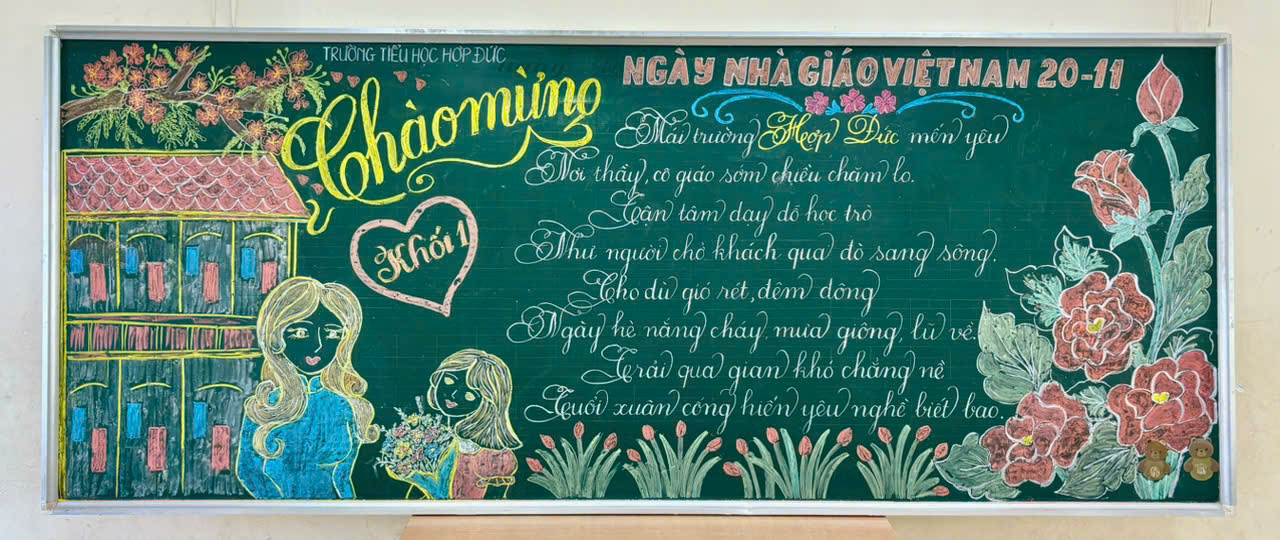 TRƯỜNG TIỂU HỌC HỢP ĐỨC
Chào mừng
NGÀY NHÀ GIÁO VIỆT NAM 20-11
Khối 1
Mái trường Hợp Đức mến yêu
Nơi thầy, cô giáo sớm chiều chăm lo.
Tận tâm dạy dỗ học trò
Như người chở khách qua đò sang sông.
Cho dù gió rét, đêm đông
Ngày hè nắng cháy, mưa giông, lũ về.
Trải qua gian khó chẳng nề
Tuổi xuân cống hiến yêu nghề biết bao.